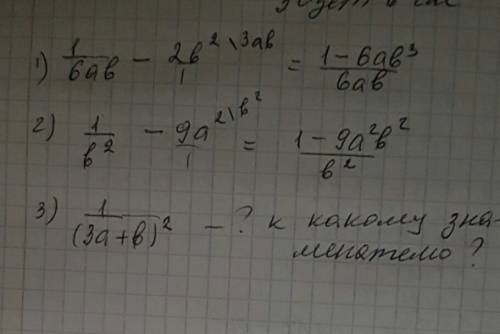 1) 1/6ab − 2b²/1 \3ab = 1−6ab³/6ab
2) 1/b² − 9a²/1 \b² = 1−9a²b²/b²
3) 1/(3a+b)² − ? к какому зна-
менателю ?